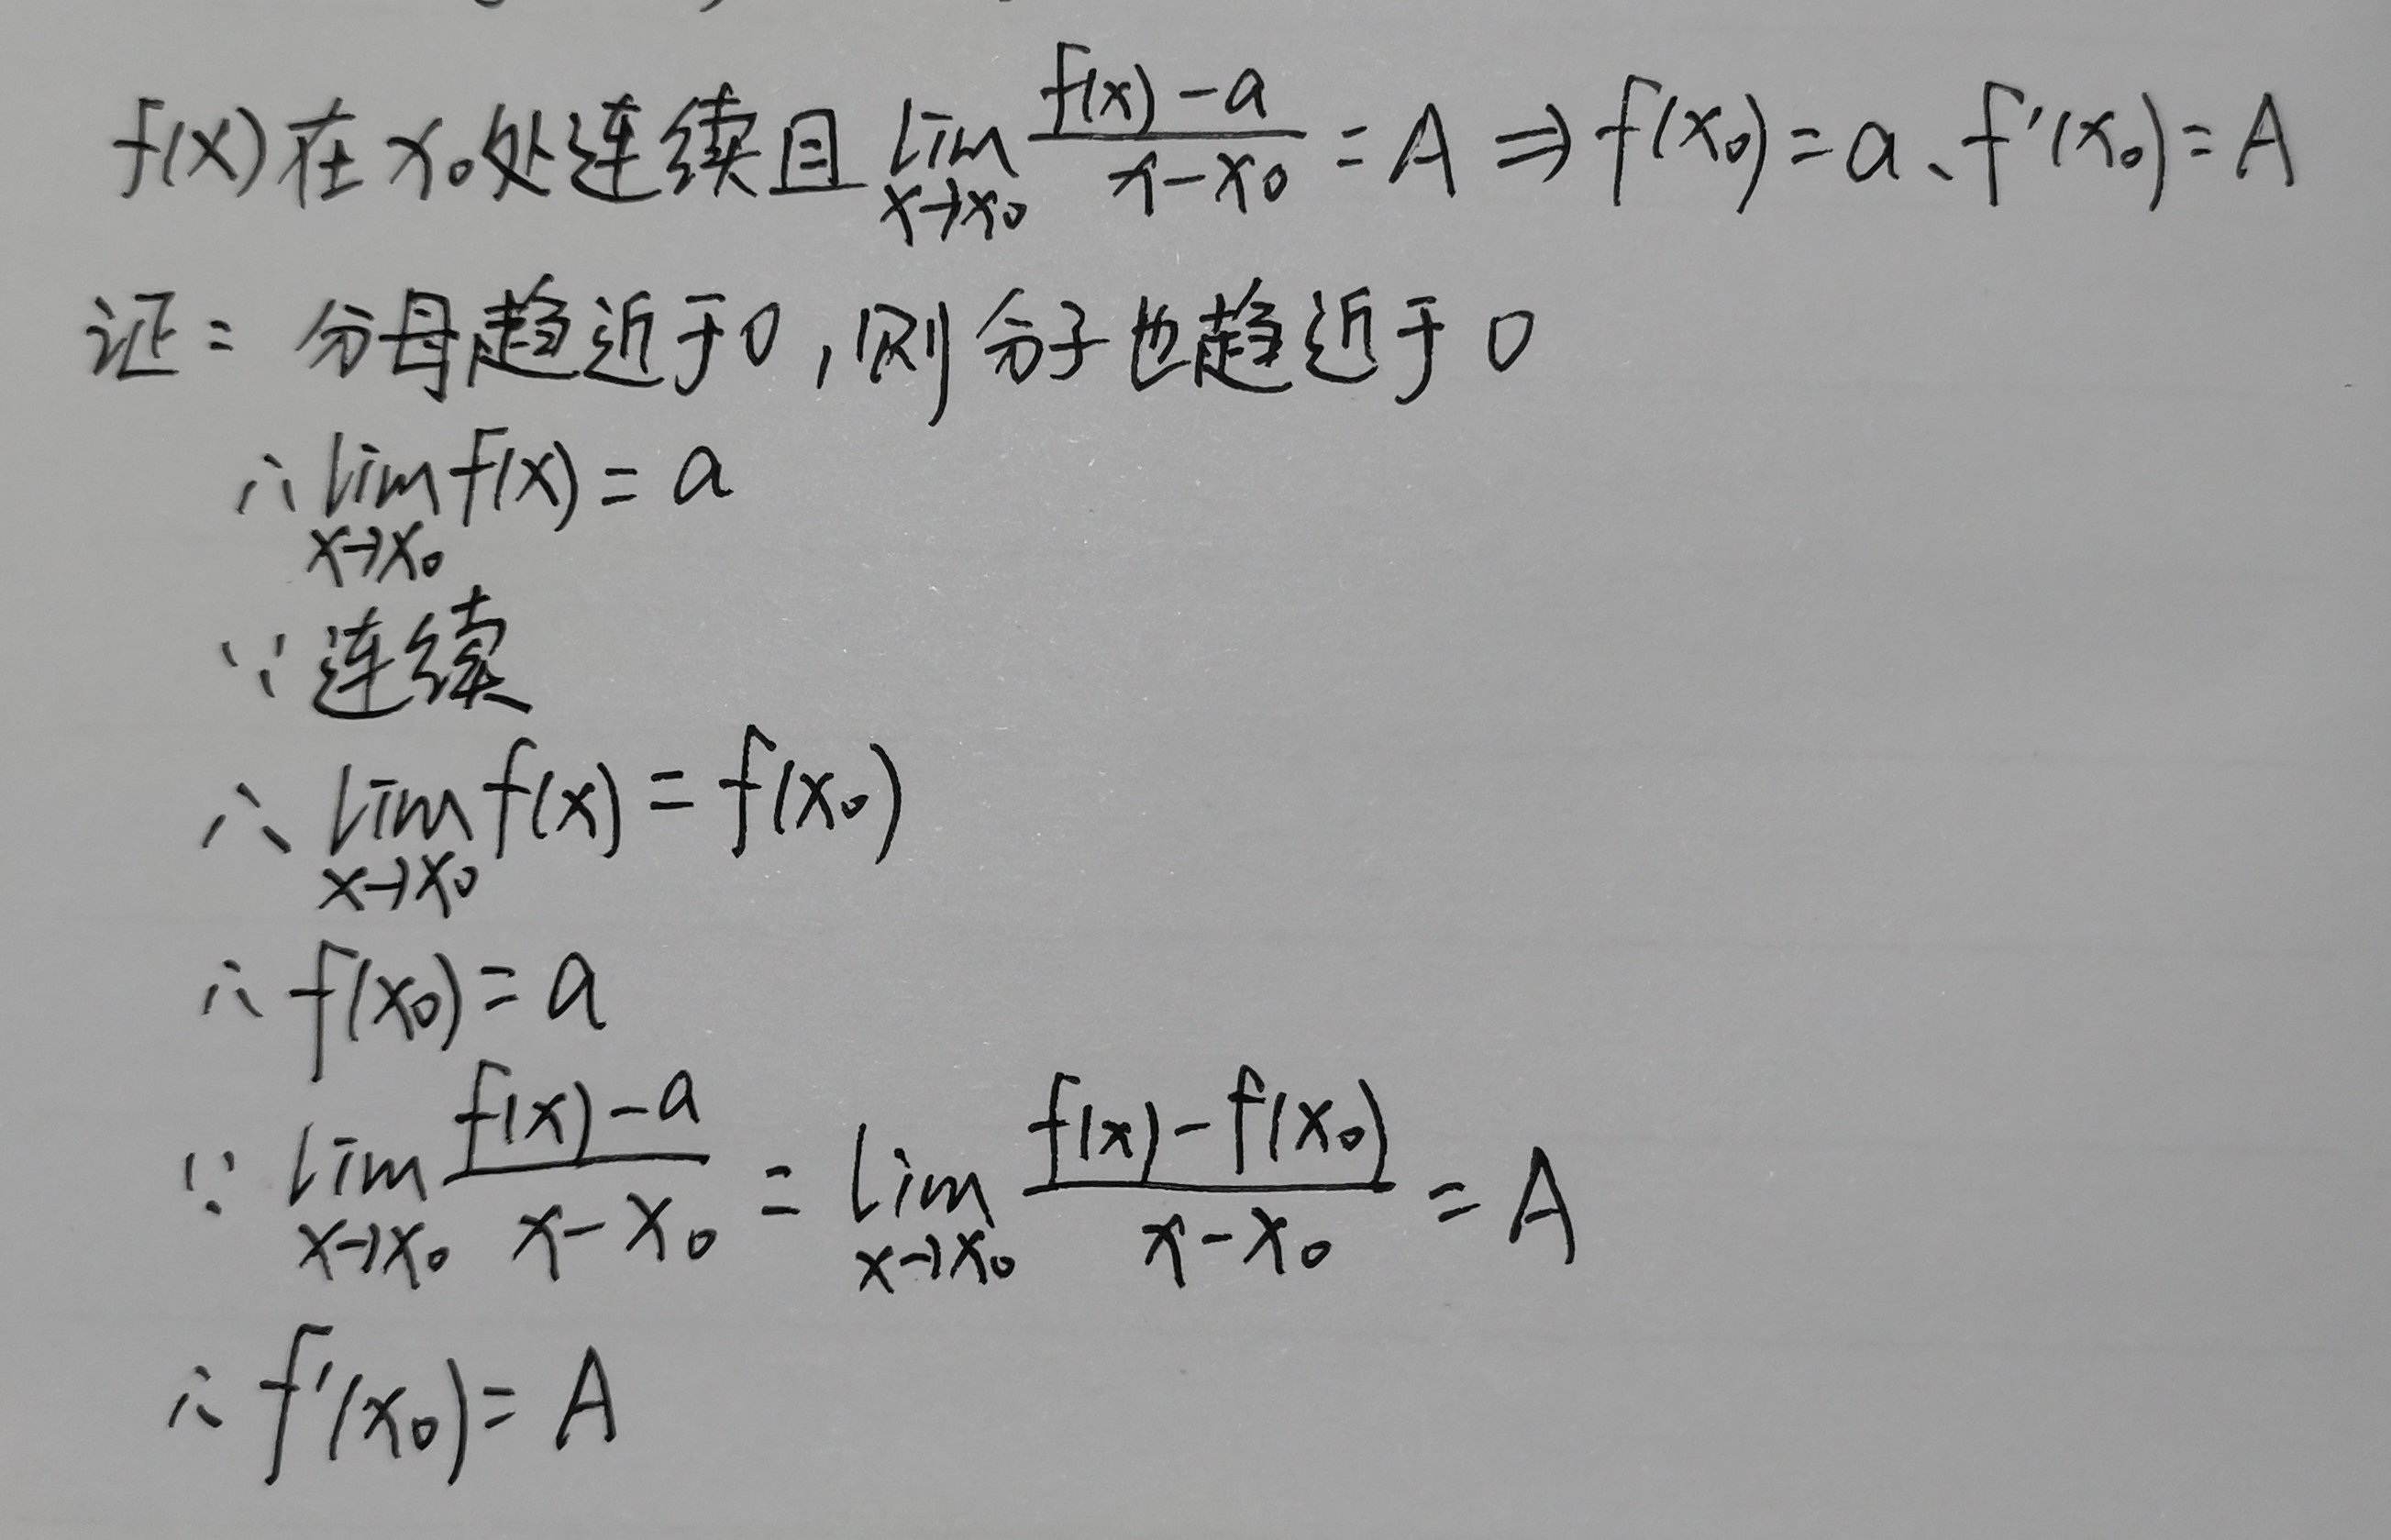 f(x)在x₀处连续且lim_{x→x₀} (f(x)-a)/(x-x₀) = A ⇒ f(x₀)=a、f'(x₀)=A
证: 分母趋近于0,则分子也趋近于0
∴ lim_{x→x₀} f(x) = a
∵ 连续
∴ lim_{x→x₀} f(x) = f(x₀)
∴ f(x₀) = a
∵ lim_{x→x₀} (f(x)-a)/(x-x₀) = lim_{x→x₀} (f(x)-f(x₀))/(x-x₀) = A
∴ f'(x₀) = A